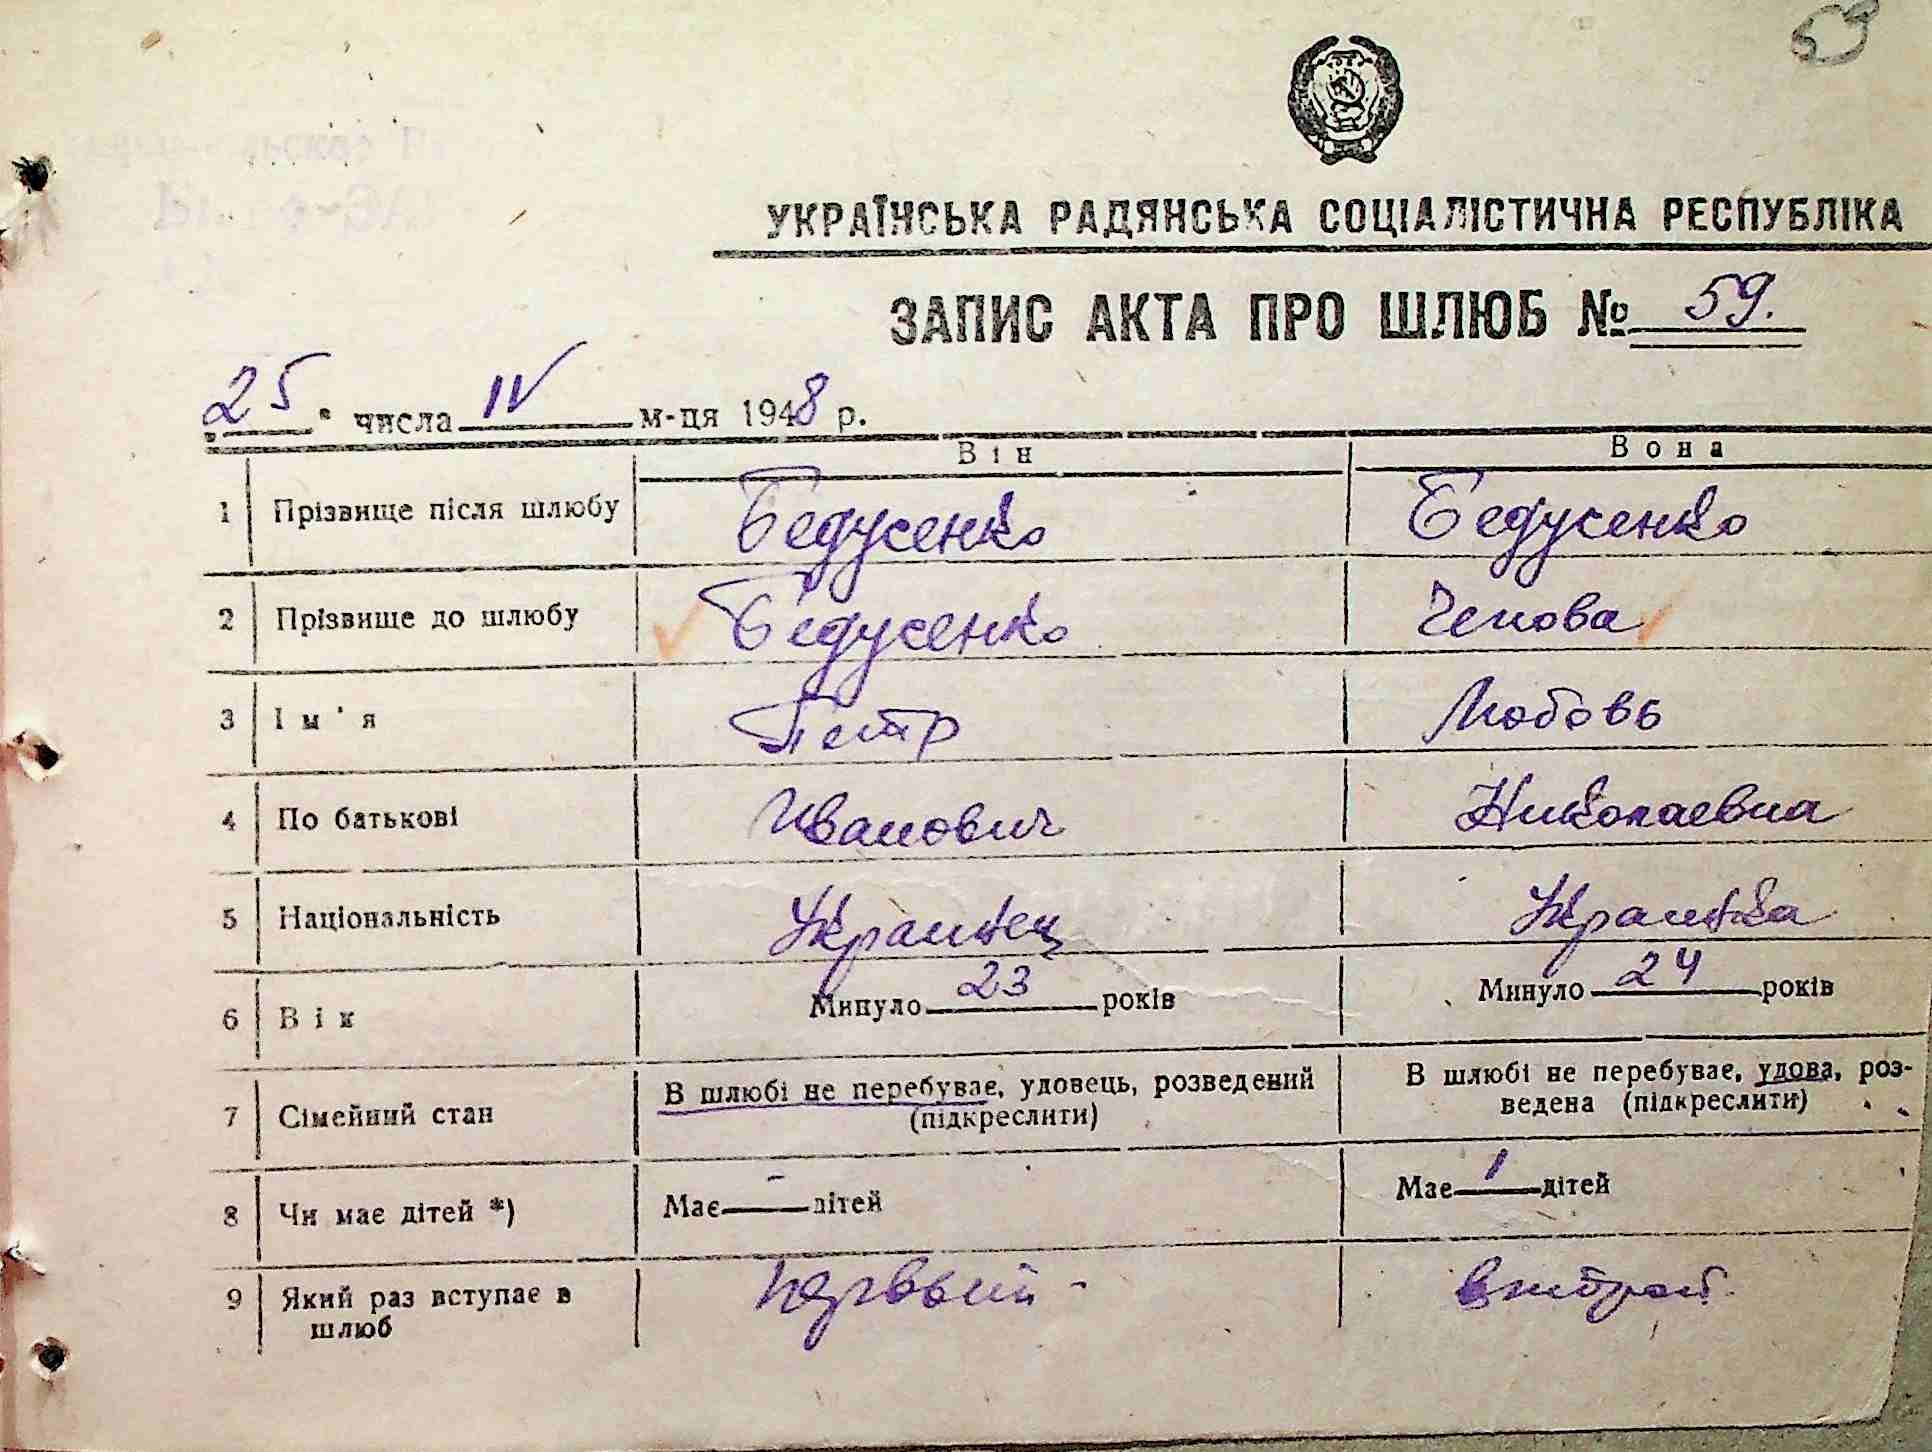 59
УКРАЇНСЬКА РАДЯНСЬКА СОЦІАЛІСТИЧНА РЕСПУБЛІКА
ЗАПИС АКТА ПРО ШЛЮБ № 59.
„25" числа IV м-ця 1948 р.
Він Вона
1 Прізвище після шлюбу Бедусенко Бедусенко
2 Прізвище до шлюбу Бедусенко
3 Ім'я Петр Любовь
4 По батькові Иванович Николаевна
5 Національність Украинец Украинка
6 Вік Минуло 23 років Минуло 24 років
7 Сімейний стан В шлюбі не перебуває, удовець, розведений (підкреслити) В шлюбі не перебуває, удова, роз-
ведена (підкреслити)
8 Чи має дітей *) Має - дітей Має 1 дітей
9 Який раз вступає в шлюб первый - второй